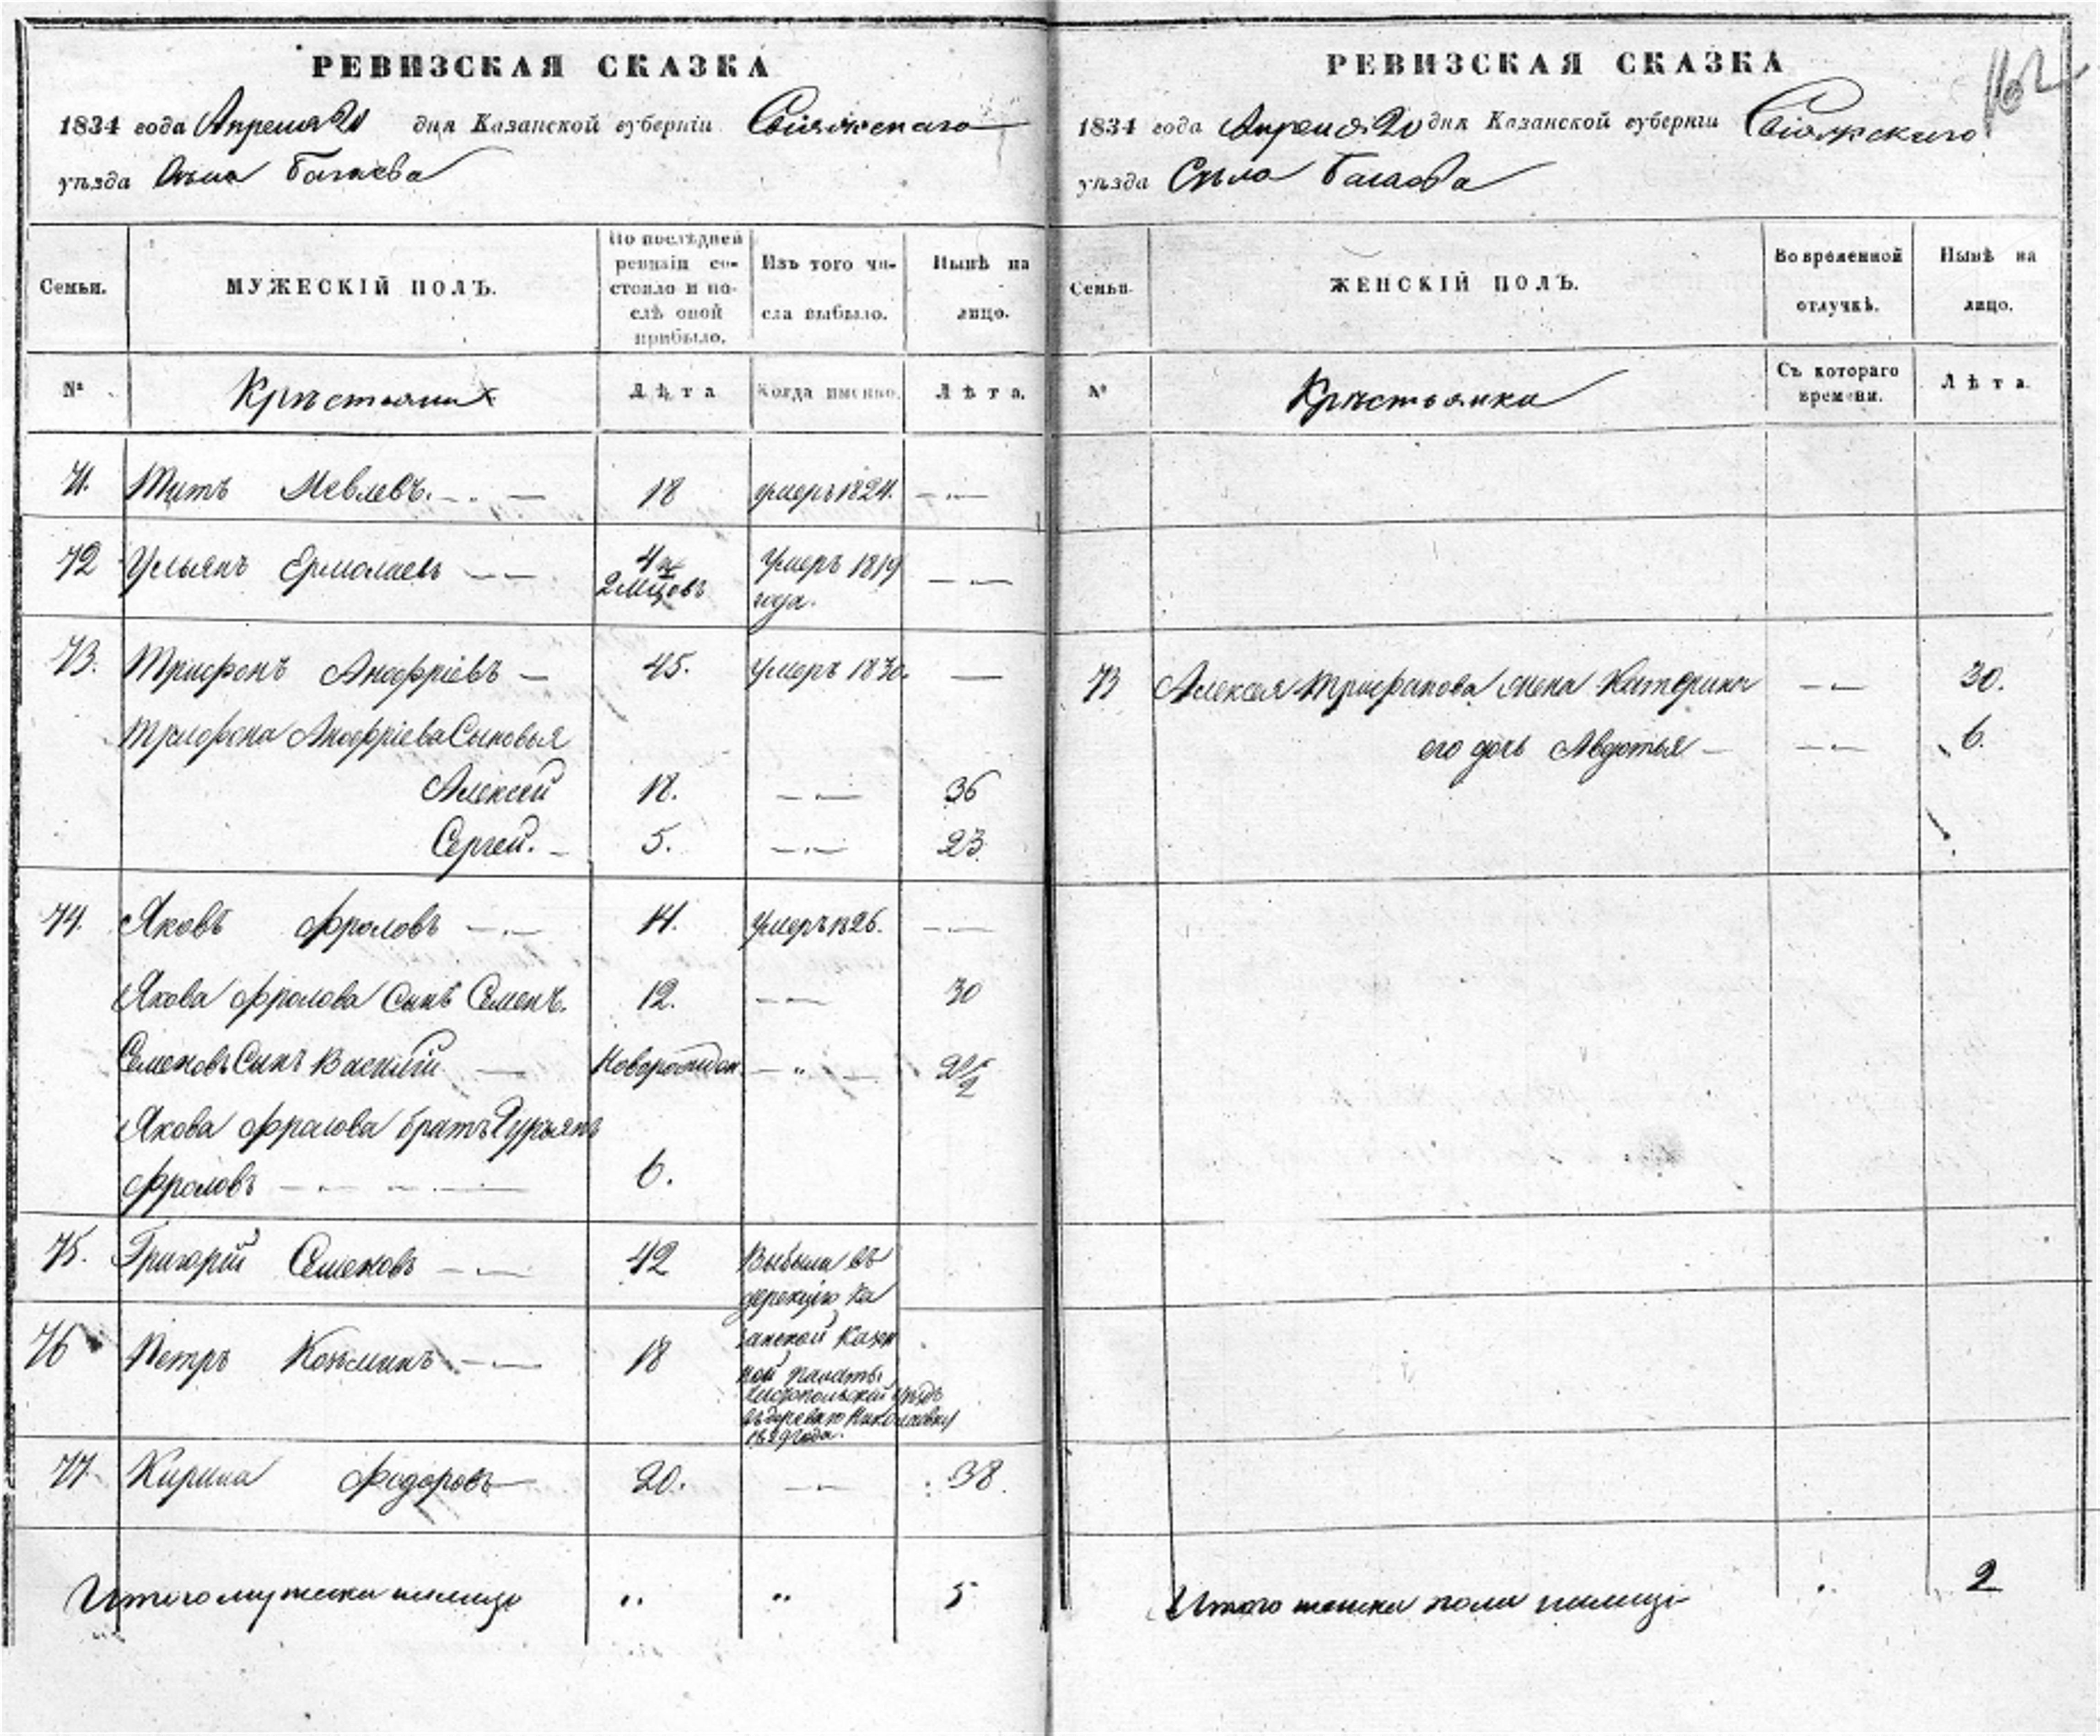 РЕВИЗСКАЯ СКАЗКА
1834 года Апреля 20 дня Казанской губернiи Свiяжскаго
уѣзда Села
Семьи.
МУЖЕСКIЙ ПОЛЪ.
По послѣдней
ревизiи со-
стояло и по-
слѣ оной
прибыло.
Изъ того чи-
сла выбыло.
Нынѣ на
лицо.
№
Лѣта
Когда именно.
Лѣта.
71. Титъ 18 умеръ 1824.
72 Ульянъ Ермолаевъ 4 и Умеръ 1819
2 мцовъ года.
73. Трифонъ Анофрiевъ 45. Умеръ 1830.
Трифона Анофрiева Сыновья
Алексей 18. 36
Сергей. 5. 23
74. Яковъ Фроловъ Умеръ 1826.
Якова Фролова Сынъ Семенъ. 12. 30
Семеновъ Сынъ Василiй Новорожден. 2 1/2
Якова Фролова братъ Гурьянъ
Фроловъ 6.
75. Григорiй Семеновъ 42
76 Петръ Козминъ 18
Выбыли въ
дирекцiю Ка
занской Казен
ной Палаты
Чистопольскiй уѣздъ
въ деревню Николаевку
1829 года.
77. Кирила Федоровъ 20. 38.
Итого мужеска налицо 5
РЕВИЗСКАЯ СКАЗКА
162
1834 года Апреля 20 дня Казанской губернiи Свiяжскаго
уѣзда Села
Семьи
ЖЕНСКIЙ ПОЛЪ.
Во временной
отлучкѣ.
Нынѣ на
лицо.
№
Крестьянки
Съ котораго
времени.
Лѣта
73 Алексея Трифанова жена Катерина 30.
его дочь Авдотья 6.
Итого женска пола налицо 2